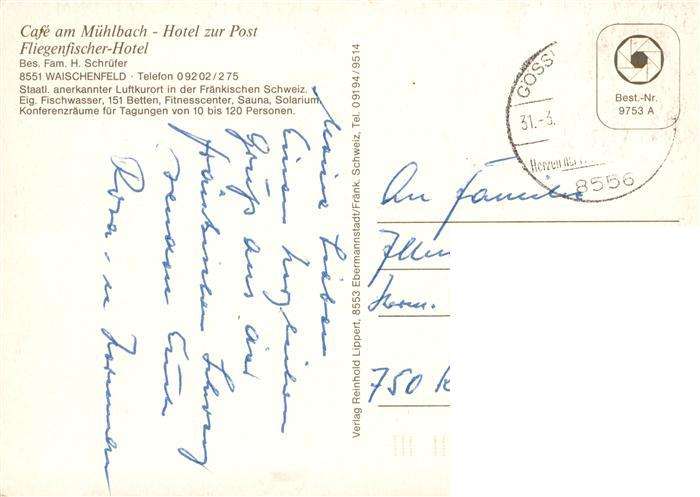 Café am Mühlbach - Hotel zur Post
Fliegenfischer-Hotel
Bes. Fam. H. Schrüfer
8551 WAISCHENFELD · Telefon 0 92 02 / 2 75
Staatl. anerkannter Luftkurort in der Fränkischen Schweiz.
Eig. Fischwasser, 151 Betten, Fitnesscenter, Sauna, Solarium,
Konferenzräume für Tagungen von 10 bis 120 Personen.
Meine Lieben
Einen herzlichen
Gruß aus der
Fränkischen Schweiz
senden Euch
Rosa u. Hermann
Verlag Reinhold Lippert, 8553 Ebermannstadt/Fränk. Schweiz, Tel. 0 91 94 / 95 14
GÖSS
31.-3.
Herzen
8556
Best.-Nr.
9753 A
An Familie
Herm.
750 K